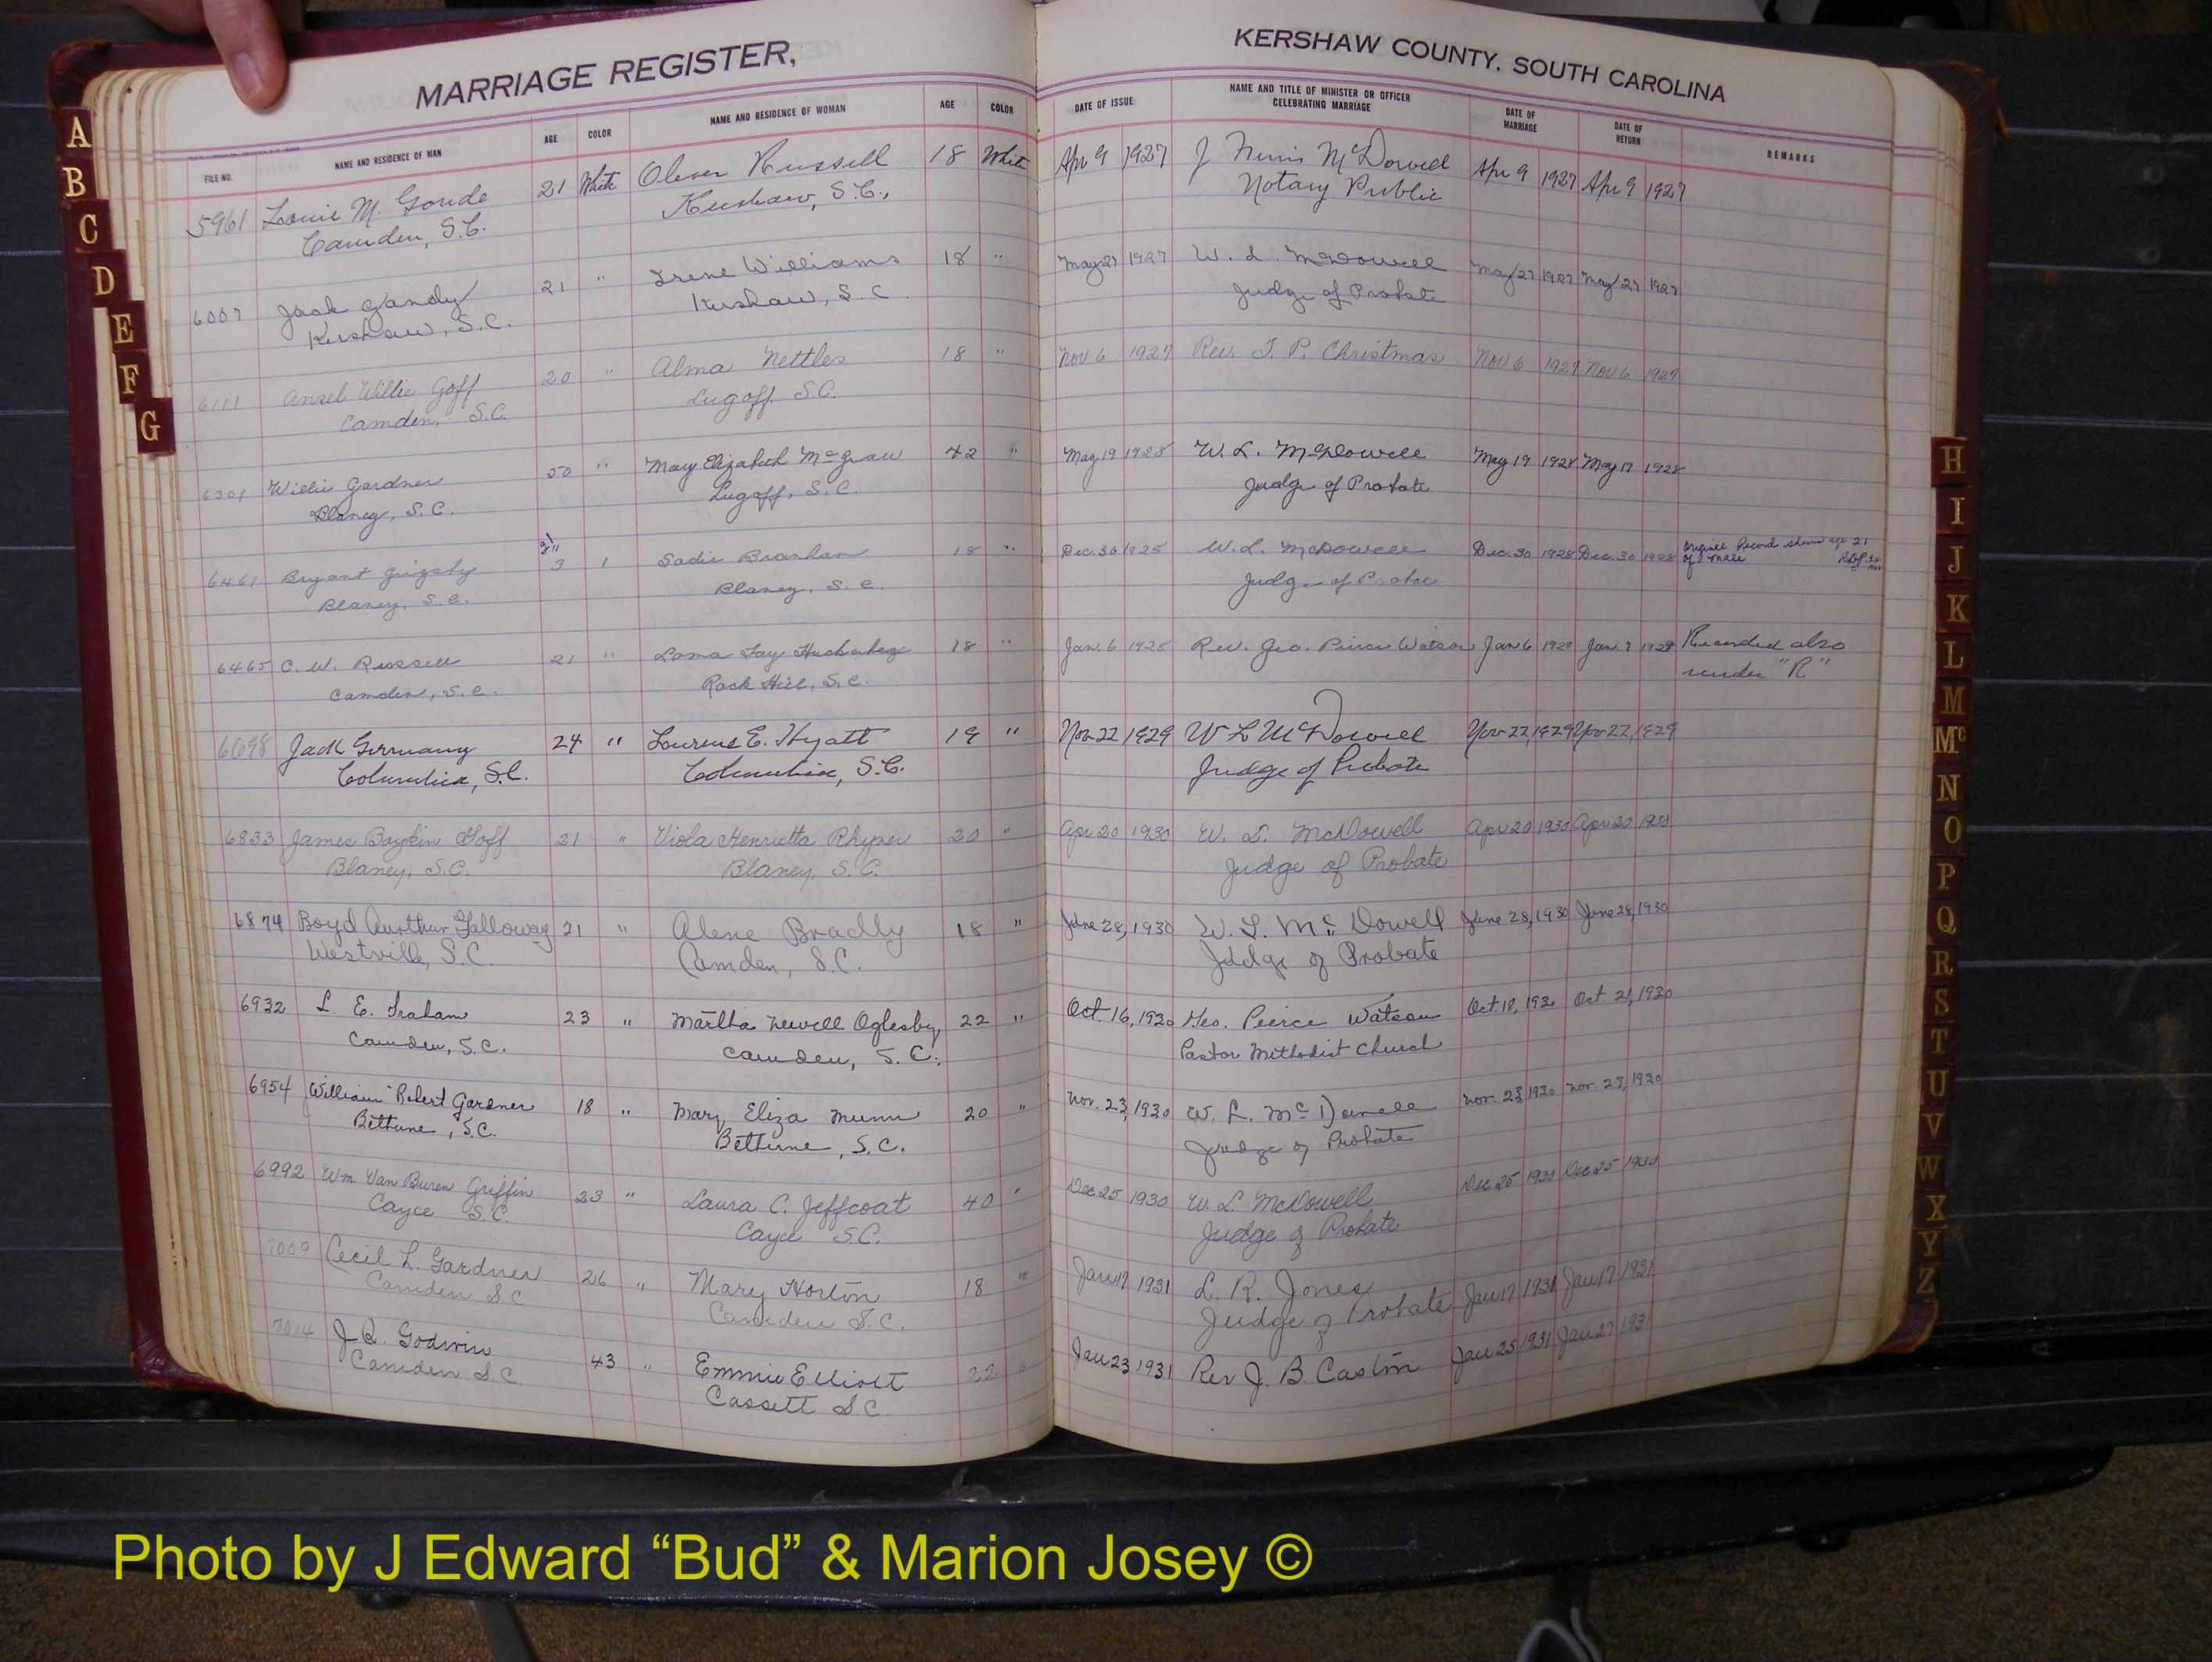 MARRIAGE REGISTER,
KERSHAW COUNTY, SOUTH CAROLINA
FILE NO. NAME AND RESIDENCE OF MAN AGE COLOR NAME AND RESIDENCE OF WOMAN AGE COLOR DATE OF ISSUE NAME AND TITLE OF MINISTER OR OFFICER CELEBRATING MARRIAGE DATE OF MARRIAGE DATE OF RETURN REMARKS
5961 M. Goude 21 White Russell 18 White Apr 9 1927 J McDowell Apr 9 1927 Apr 9 1927
Camden, S.C. Kershaw, S.C., Notary Public
6007 Jack Gandy 21 " Irene Williams 18 " May 27 1927 W. L. McDowell May 27 1927 May 27 1927
Kershaw, S.C. Kershaw, S.C. Judge of Probate
6111 Ansel Willie Goff 20 " Alma Nettles 18 " Nov 6 1927 Rev. T. P. Christmas Nov 6 1927 Nov 6 1927
Camden, S.C. Lugoff S.C.
Willie Gardner 50 " May Elizabeth McGraw 42 " May 19 1928 W. L. McDowell May 19 1928 May 1928
Blaney, S.C. Lugoff, S.C. Judge of Probate
6461 Bryant Grigsby Sadie Branham 18 " Dec. 30 1928 W. L. McDowell Dec. 30 1928 Dec. 30 1928 Original Record shows age 21
Blaney, S.C. Blaney, S.C. Judge of Probate of male
6465 C. W. Russell 21 " Fay 18 " Jan. 6 Rev. Geo. Pierce Watson Jan 6 Jan. 7 Recorded also
Camden, S.C. Rock Hill, S.C. under "R"
6698 Jack Germany 24 " E. Hyatt 19 " Nov 22 1929 W L McDowell Nov 22, 1929 Nov 22, 1929
Columbia, S.C. Columbia, S.C. Judge of Probate
6833 James Boykin Goff 21 " Viola Henrietta 20 " Apr 20 1930 W. L. McDowell Apr 20 1930 Apr 20 1930
Blaney, S.C. Blaney, S.C. Judge of Probate
6874 Boyd Aurthur Galloway 21 " Alene Bradly 18 " June 28, 1930 W. L. Mc Dowell June 28, 1930 June 28, 1930
Westville, S.C. Camden, S.C. Judge of Probate
6932 L. E. Graham 23 " Martha Oglesby, 22 " Oct. 16, 1930 Geo. Peirce Watson Oct. 18, 1930 Oct 21, 1930
Camden, S.C. Camden, S.C. Pastor Methodist Church
6954 William Robert Gardner 18 " Mary Eliza Munn 20 " Nov. 23, 1930 W. L. McDowell Nov. 23, 1930 Nov. 23, 1930
Bethune, S.C. Bethune, S.C. Judge of Probate
6992 Wm Van Buren Griffin 23 " Laura C. Jeffcoat 40 " Dec 25 1930 W. L. McDowell Dec 25 1930 Dec 25 1930
Cayce S.C. Cayce S.C. Judge of Probate
7009 Cecil L. Gardner 26 " Mary Horton 18 " Jan 17 1931 L. R. Jones Jan 17 1931 Jan 17 1931
Camden S.C Camden S.C. Judge of Probate
7014 Godwin 43 " Emmie Elliott 22 " Jan 23 1931 Rev J. B. Caston Jan 25 1931 Jan 27 1931
Camden S.C. Cassett S.C
A
B
C
D
E
F
G
H
I
J
K
L
M
Mc
N
O
P
Q
R
S
T
U
V
W
X
Y
Z
Photo by J Edward “Bud” & Marion Josey ©